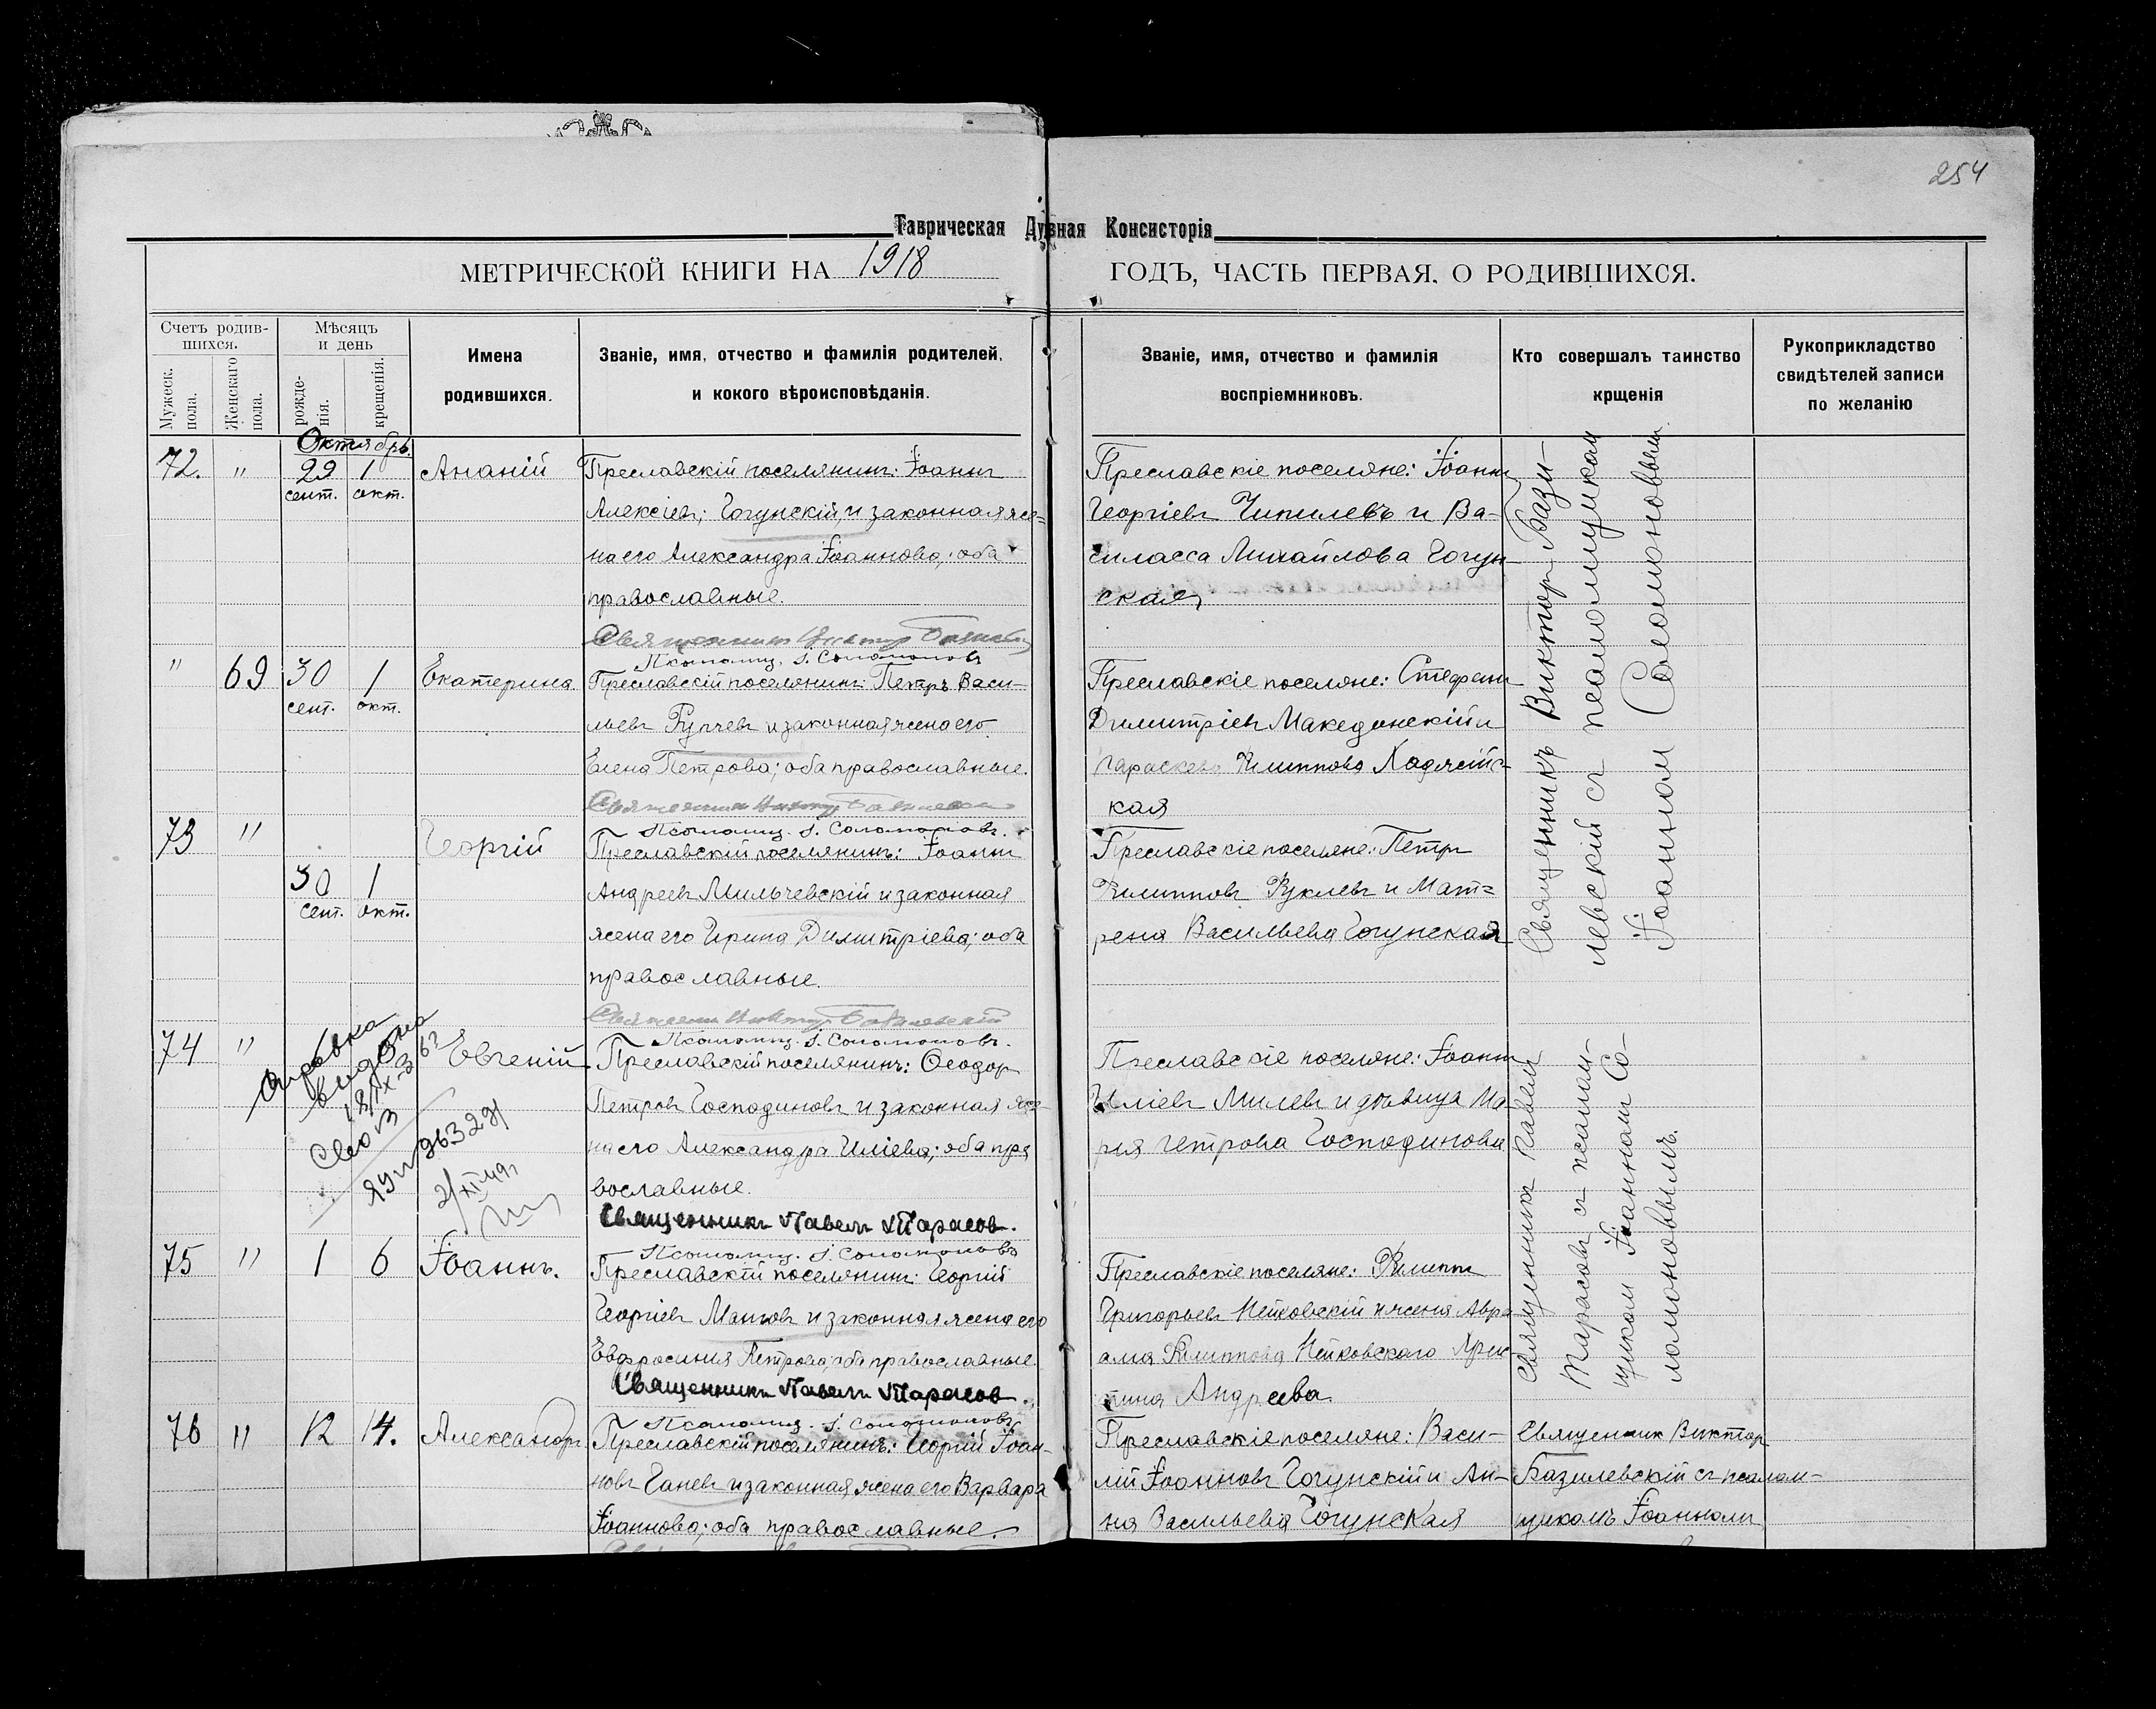 254
Таврическая Духвная Консисторія
МЕТРИЧЕСКОЙ КНИГИ НА 1918 ГОДЪ, ЧАСТЬ ПЕРВАЯ. О РОДИВШИХСЯ.
Счетъ родив-
шихся.
Мужеск.
пола.
Женскаго
пола.
Мѣсяцъ
и день
рожде-
нія.
крещенія.
Имена
родившихся.
Званіе, имя, отчество и фамилія родителей,
и кокого вѣроисповѣданія.
Званіе, имя, отчество и фамилія
воспріемниковъ.
Кто совершалъ таинство
крщенія
Рукоприкладство
свидѣтелей записи
по желанію
Октябрь.
72. " 29 1 Ананій
сент. окт.
Преславскій поселянинъ: Іоаннъ
Алексіевъ; Гогунскій, и законная же=
на его Александра Іоаннова; оба
православные.
Псаломщ. І. Соломоновъ
Преславскіе поселяне: Іоаннъ
Георгіевъ Чипилевъ и Ва-
силасса Михайлова Гогун-
ская
" 69 30 1 Екатерина
сент. окт.
Преславскій поселянинъ: Петръ Васи-
льевъ Рупчевъ и законная жена его
Елена Петрова; оба православные.
Псаломщ. І. Соломоновъ.
Преславскіе поселяне: Стефанъ
Димитріевъ Македонскій и
Параскева Филиппова Хаджійс-
кая
73 " Георгій
30 1
сент. окт.
Преславскій поселянинъ: Іоаннъ
Андреевъ Мильчевскій и законная
жена его Ирина Димитріева; оба
православные.
Псаломщ. І. Соломоновъ.
Преславскіе поселяне: Петръ
Филипповъ Руклевъ и Мат=
рена Васильева Гогунская
Священникъ Викторъ Бази-
левскій съ псаломщикомъ
Іоанномъ Соломоновымъ.
74 " Евгеній
справка
выдана
Преславскій поселянинъ: Ѳеодоръ
Петровъ Господиновъ и законная же-
на его Александра Иліева; оба пра
вославные.
Священникъ Павелъ Тарасов.
Псаломщ. І. Соломоновъ
Преславскіе поселяне: Іоаннъ
Иліевъ Милевъ и дѣвица Ма-
рія Петрова Господинова
75 " 1 6 Іоаннъ.
Преславскій поселянинъ: Георгій
Георгіевъ Манчовъ и законная жена его
Евфросинія Петрова; оба православные
Священникъ Павелъ Тарасов.
Псаломщ. І. Соломоновъ
Преславскіе поселяне: Филиппъ
Григорьевъ Нейковскій и жена Авра
ама Филиппова Нейковскаго Хрис-
тина Андреева
Священникъ Павелъ
Тарасовъ съ псалом-
щикомъ Іоанномъ Со-
ломоновымъ.
76 " 12 14. Александръ
Преславскій поселянинъ: Георгій Іоан-
новъ Ганевъ и законная жена его Варвара
Іоаннова; оба православные.
Преславскіе поселяне: Васи-
лій Іоанновъ Гогунскій и Ан-
на Васильева Гогунская
Священникъ Викторъ
Базилевскій съ псалом-
щикомъ Іоанномъ